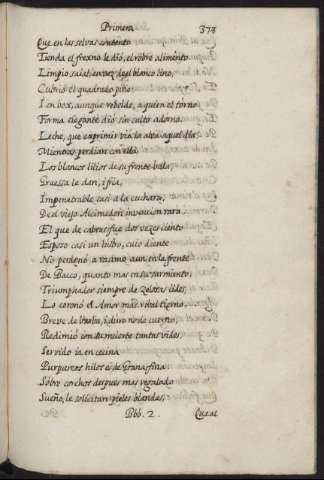 Primera 378
Que en las selvas contento
Tienda el fresno le dió, el robre alimento
Limpio saial, en vez de el blanco lino,
Cubrió el quadrado pino
I en box, aunque rebelde, a quien el torno
Forma elegante dió sin culto adorno,
Leche, que exprimir vió la alva aquel dia,
Mientras perdian con ella
Los blancos lilios de su frente bella,
Gruessa le dan, i fria,
Impenetrable casi a la cuchara,
De el viejo Alcimedon invencion rara
El que de cabras fue dos vezes ciento
Esposo casi un lustro, cuio diente
No perdonó a racimo aun en la frente
De Bacco, quanto mas en su sarmiento,
Triumphador siempre de zelosas lides,
Lo coronó el Amor mas rival tierno,
Breve de barba, i duro no de cuerno,
Redimió con su muerte tantas vides,
Servido ia en cecina
Purpureos hilos es de Grana fina
Sobre corchos despues mas regalado
Sueño, le solicitan pieles blandas,
Bbb. 2. Que al